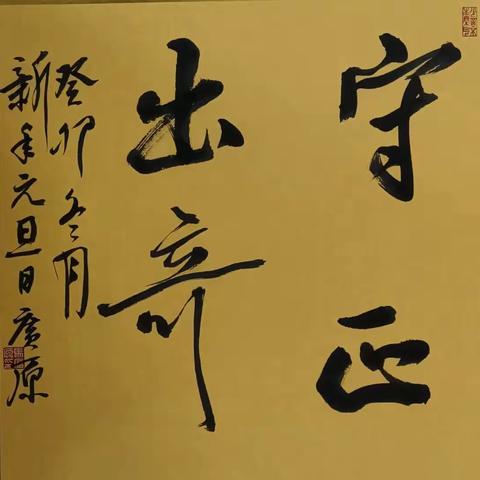 守正
出奇
癸卯冬月
新年元旦日廣原